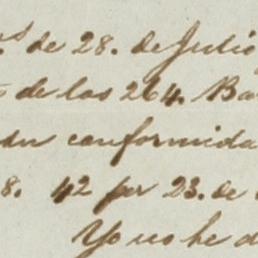 de 28. de Julio
de las 264. Ba
conformida
8. 42 por 23. de
Yo no he d